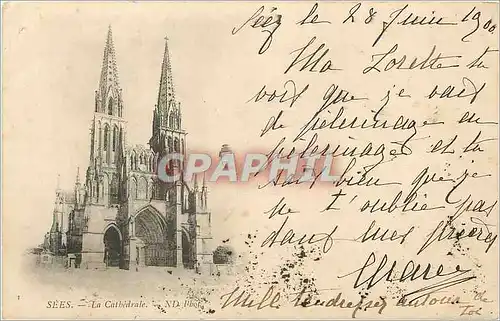 Séez le 28 Juin 1900
Ma Lorette tu
vois que je vais
de pélerinage en
pélerinages et tu
sais bien que je
ne t'oublie pas
dans mes prières
Marie
Mille tendresses autour de
toi
CPARAMA
1
SÉES. - La Cathédrale. - ND Phot.